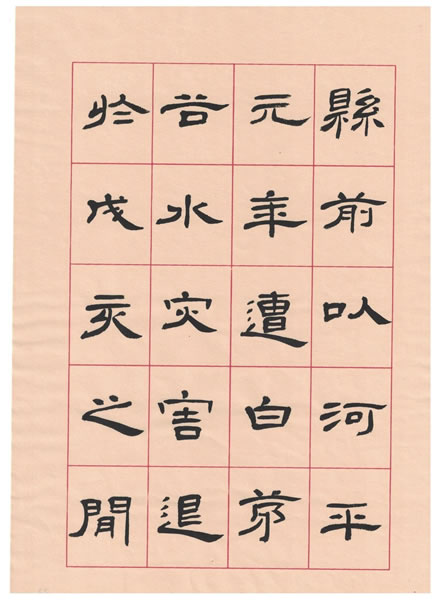 縣前以河平
元年遭白茅
谷水灾害退
於戌亥之間